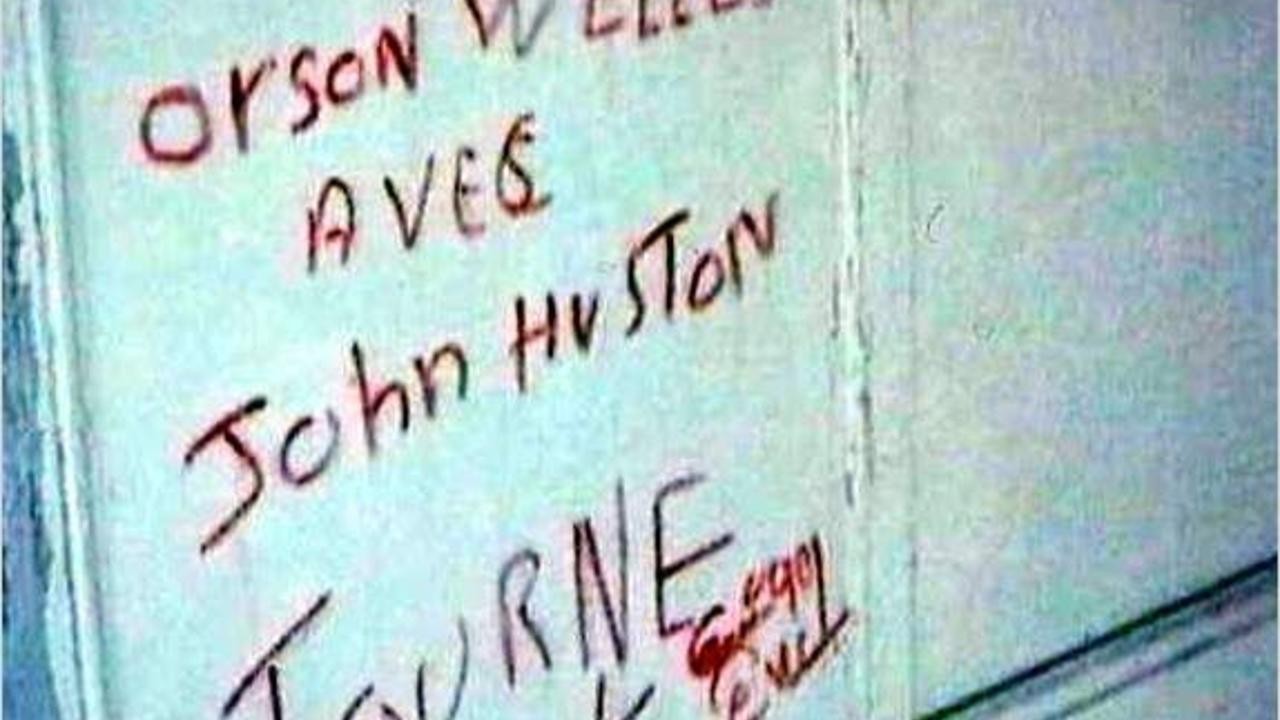 Orson WELLE
AVEC
John HUSTON
TOURNE